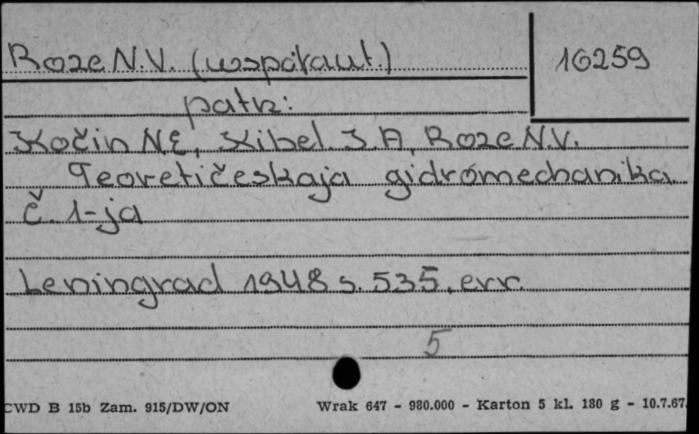 Roze N.V. (współaut.)
10259
patrz:
Kočin N.E, Kibel I.A, Roze N.V.
Teoretičeskaja gidromechanika
č. 1-ja
Leningrad 1948 s. 535, err.
5
CWD B 15b Zam. 915/DW/ON Wrak 647 - 980.000 - Karton 5 kl. 180 g - 10.7.67